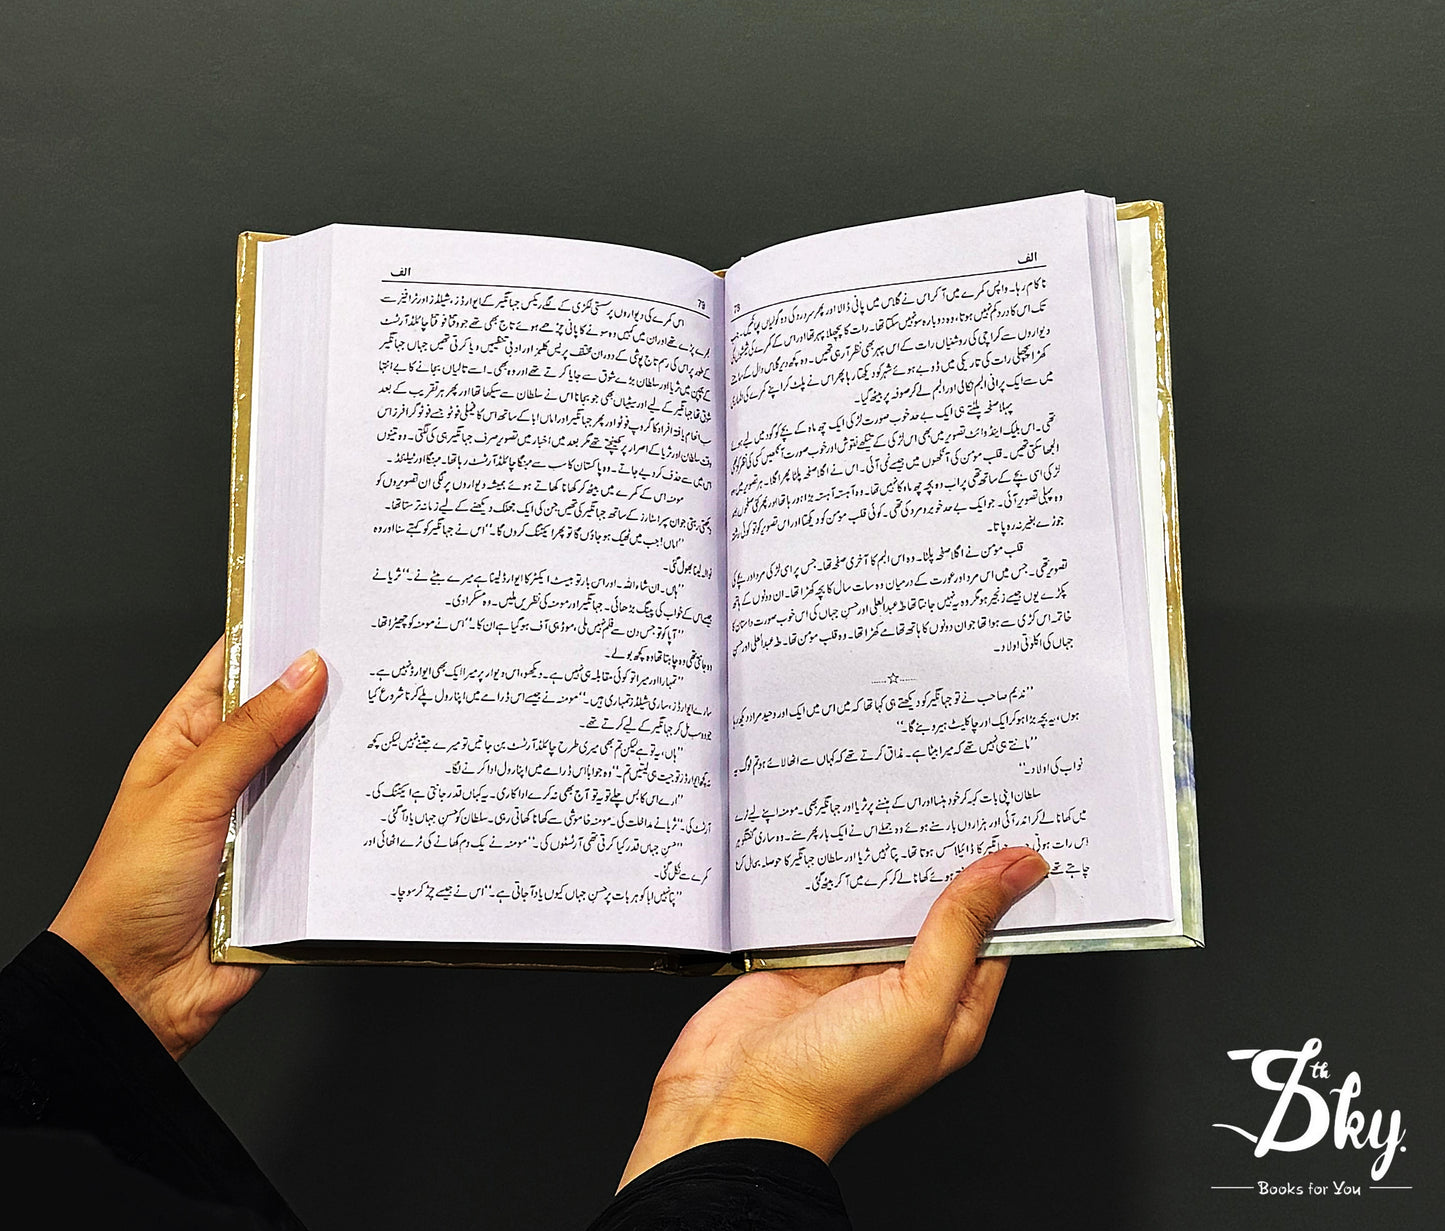 الف
78
ناکام رہا۔ واپس کمرے میں آ کر اس نے گلاس میں پانی ڈالا اور پھر سر درد کی دو گولیاں پھانکیں۔ جب
تک اس کا درد کم نہیں ہوتا، وہ دوبارہ سو نہیں سکتا تھا۔ رات کا پچھلا پہر تھا اور اس کے کمرے کی شیشوں کی
دیواروں سے کراچی کی روشنیاں رات کے اس پہر بھی نظر آ رہی تھیں۔ وہ کچھ دیر گلاس وال کے سامنے
کھڑا پچھلی رات کی تاریکی میں ڈوبے ہوئے شہر کو دیکھتا رہا پھر اس نے پلٹ کر اپنے کمرے کی الماری
میں سے ایک پرانی البم نکالی اور البم لے کر صوفہ پر بیٹھ گیا۔
پہلا صفحہ پلٹتے ہی ایک بے حد خوب صورت لڑکی ایک چھ ماہ کے بچے کو گود میں لیے ہوئے
تھی۔ اس بلیک اینڈ وائٹ تصویر میں بھی اس لڑکی کے تیکھے نقوش اور خوب صورت آنکھیں کسی کی نظر کو بھی
الجھا سکتی تھیں۔ قلب مومن کی آنکھوں میں جیسے نمی آئی۔ اس نے اگلا صفحہ پلٹا پھر اگلا۔ ہر تصویر میں وہ
لڑکی اسی بچے کے ساتھ تھی پر اب وہ بچہ چھ ماہ کا نہیں تھا۔ وہ آہستہ آہستہ بڑا ہو رہا تھا اور پھر کئی صفحوں بعد
وہ پہلی تصویر آئی۔ جو ایک بے حد خوبرو مرد کی تھی۔ کوئی قلب مومن کو دیکھتا اور اس تصویر کو تو کوئی رشتہ
جوڑے بغیر نہ رہ پاتا۔
قلب مومن نے اگلا صفحہ پلٹا۔ وہ اس البم کا آخری صفحہ تھا۔ جس پر اسی لڑکی مرد اور بچے کی
تصویر تھی۔ جس میں اس مرد اور عورت کے درمیان وہ سات سال کا بچہ کھڑا تھا۔ ان دونوں کے ہاتھ
پکڑے یوں جیسے زنجیر ہو مگر وہ یہ نہیں جانتا تھا طہٰ عبدالعلی اور حسن جہاں کی اس خوب صورت داستان کا
خاتمہ اس کڑی سے ہوا تھا جو ان دونوں کا ہاتھ تھامے کھڑا تھا۔ وہ قلب مومن تھا۔ طہٰ عبدالعلی اور حسن
جہاں کی اکلوتی اولاد۔
......☆......
"ندیم صاحب نے تو جہانگیر کو دیکھتے ہی کہا تھا کہ میں اس میں ایک اور وحید مراد دیکھ رہا
ہوں، یہ بچہ بڑا ہو کر ایک اور چاکلیٹ ہیرو بنے گا۔"
"مانتے ہی نہیں تھے کہ میرا بیٹا ہے۔ مذاق کرتے تھے کہ کہاں سے اٹھا لائے ہو تم لوگ یہ
نواب کی اولاد۔"
سلطان اپنی بات کہہ کر خود ہنسا اور اس کے ہنسنے پر ثریا اور جہانگیر بھی۔ مومنہ اپنے لیے ٹرے
میں کھانا لے کر اندر آئی اور ہزاروں بار سنے ہوئے وہ جملے اس نے ایک بار پھر سنے۔ وہ ساری گفتگو ہر
اس رات ہوتی جہانگیر کا ڈائیلاسس ہوتا تھا۔ پتا نہیں ثریا اور سلطان جہانگیر کا حوصلہ بحال کرنا
چاہتے تھے ہوئے کھانا لے کر کمرے میں آ کر بیٹھ گئی۔
الف
79
اس کمرے کی دیواروں پر سستی لکڑی کے لگے ریکس جہانگیر کے ایوارڈز، شیلڈز اور ٹرافیز سے
بھرے پڑے تھے اور ان میں کہیں وہ سونے کا پانی چڑھے ہوئے تاج بھی تھے جو وقتاً فوقتاً چائلڈ آرٹسٹ
کے طور پر اس کی رسم تاج پوشی کے دوران مختلف پریس کلبز اور ادبی تنظیمیں دیا کرتی تھیں جہاں جہانگیر
کے بچپن میں ثریا اور سلطان بڑے شوق سے جایا کرتے تھے اور وہ بھی۔ اسے تالیاں بجانے کا بے انتہا
شوق تھا جہانگیر کے لیے اور سیٹیاں بھی جو بجانا اس نے سلطان سے سیکھا تھا اور پھر ہر تقریب کے بعد
سب انعام یافتہ افراد کا گروپ فوٹو اور پھر جہانگیر اور اماں ابا کے ساتھ اس کا فیملی فوٹو جسے فوٹو گرافرز اس
وقت سلطان اور ثریا کے اصرار پر کھینچتے تھے مگر بعد میں اخبار میں تصویر صرف جہانگیر ہی کی لگتی۔ وہ تینوں
اس میں سے حذف کر دیے جاتے۔ وہ پاکستان کا سب سے مہنگا چائلڈ آرٹسٹ رہا تھا۔ مہنگا اور ٹیلنٹڈ۔
مومنہ اس کے کمرے میں بیٹھ کر کھانا کھاتے ہوئے ہمیشہ دیواروں پر لگی ان تصویروں کو
دیکھتی رہتی جو ان سپر اسٹارز کے ساتھ جہانگیر کی تھیں جن کی ایک جھلک دیکھنے کے لیے زمانہ ترستا تھا۔
"اماں! جب میں ٹھیک ہو جاؤں گا تو پھر ایکٹنگ کروں گا۔" اس نے جہانگیر کو کہتے سنا اور وہ
نوالہ لینا بھول گئی۔
"ہاں۔ ان شاء اللہ۔ اور اس بار تو بیسٹ ایکٹر کا ایوارڈ لینا ہے میرے بیٹے نے۔" ثریا نے
جیسے اس کے خواب کی پینگ بڑھائی۔ جہانگیر اور مومنہ کی نظریں ملیں۔ وہ مسکرا دی۔
"آپا کو تو جس دن سے فلم نہیں ملی، موڈ ہی آف ہو گیا ہے ان کا۔" اس نے مومنہ کو چھیڑا تھا۔
وہ جانتی تھی وہ چاہتا تھا وہ کچھ بولے۔
"تمہارا اور میرا تو کوئی مقابلہ ہی نہیں ہے۔ دیکھو، اس دیوار پر میرا ایک بھی ایوارڈ نہیں ہے۔
سارے ایوارڈز، ساری شیلڈز تمہاری ہیں۔" مومنہ نے جیسے اس ڈرامے میں اپنا رول پلے کرنا شروع کیا
جو وہ سب مل کر جہانگیر کے لیے کرتے تھے۔
"ہاں، یہ تو ہے لیکن تم بھی میری طرح چائلڈ آرٹسٹ بن جاتیں تو میرے جتنے نہیں لیکن کچھ
نہ کچھ ایوارڈز تو جیت ہی لیتیں تم۔" وہ جواباً اس ڈرامے میں اپنا رول ادا کرنے لگا۔
"ارے اس کا بس چلے تو یہ تو آج بھی نہ کرے اداکاری۔ یہ کہاں قدر جانتی ہے ایکٹنگ کی۔
آرٹسٹ کی۔" ثریا نے مداخلت کی۔ مومنہ خاموشی سے کھانا کھاتی رہی۔ سلطان کو حسن جہاں یاد آ گئی۔
"حسن جہاں قدر کیا کرتی تھی آرٹسٹوں کی۔" مومنہ نے یک دم کھانے کی ٹرے اٹھائی اور
کمرے سے نکل گئی۔
"پتا نہیں ابا کو ہر بات پر حسن جہاں کیوں یاد آ جاتی ہے۔" اس نے جیسے چڑ کر سوچا۔
Sky th
Books for You